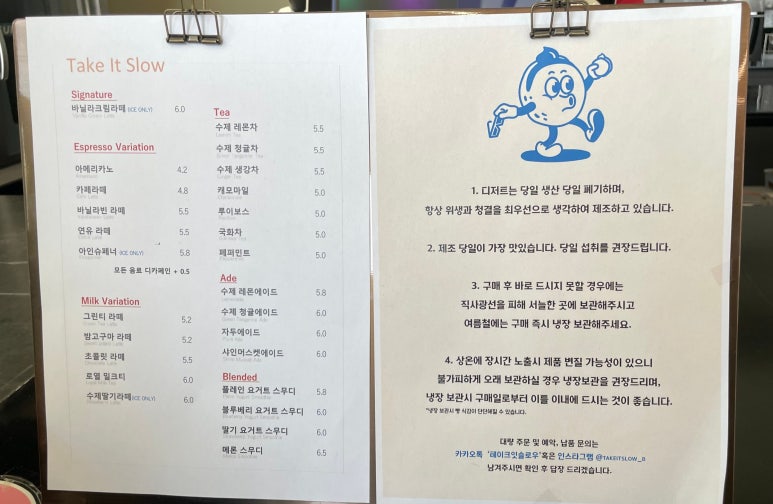 Take It Slow
Signature
바닐라크림라떼 (ICE ONLY) 6.0
Vanilla Cream Latte
Espresso Variation
아메리카노 4.2
Americano
카페라떼 4.8
Cafe Latte
바닐라빈 라떼 5.5
연유 라떼 5.5
아인슈페너 (ICE ONLY) 5.8
모든 음료 디카페인 + 0.5
Milk Variation
그린티 라떼 5.2
Green Tea Latte
밤고구마 라떼 5.2
초콜릿 라떼 5.5
Chocolate Latte
로열 밀크티 6.0
Royal Milk Tea
수제딸기라떼 (ICE ONLY) 6.0
Strawberry Latte
Tea
수제 레몬차 5.5
Lemon Tea
수제 청귤차 5.5
Green Tangerine Tea
수제 생강차 5.5
Ginger Tea
캐모마일 5.0
Chamomile
루이보스 5.0
Rooibos
국화차 5.0
페퍼민트 5.0
Peppermint
Ade
수제 레몬에이드 5.8
Lemonade
수제 청귤에이드 6.0
Green Tangerine Ade
자두에이드 6.0
Plum Ade
샤인머스켓에이드 6.0
Shine Muscat Ade
Blended
플레인 요거트 스무디 5.8
Plain Yogurt Smoothie
블루베리 요거트 스무디 6.0
Blueberry Yogurt Smoothie
딸기 요거트 스무디 6.0
Strawberry Yogurt Smoothie
메론 스무디 6.5
Melon Smoothie
1. 디저트는 당일 생산 당일 폐기하며,
항상 위생과 청결을 최우선으로 생각하여 제조하고 있습니다.
2. 제조 당일이 가장 맛있습니다. 당일 섭취를 권장드립니다.
3. 구매 후 바로 드시지 못할 경우에는
직사광선을 피해 서늘한 곳에 보관해주시고
여름철에는 구매 즉시 냉장 보관해주세요.
4. 상온에 장시간 노출시 제품 변질 가능성이 있으니
불가피하게 오래 보관하실 경우 냉장보관을 권장드리며,
냉장 보관시 구매일로부터 이틀 이내에 드시는 것이 좋습니다.
*냉장 보관시 빵 식감이 단단해질 수 있습니다.
대량 주문 및 예약, 납품 문의는
카카오톡 '테이크잇슬로우'혹은 인스타그램 @TAKEITSLOW_JJ
남겨주시면 확인 후 답장 드리겠습니다.